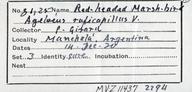 No. 51,25 Name Red-headed Marsh-bird
Agelaeus ruficapillus V.
Collector P. Girard
Locality Manchalá, Argentina
Date 14-Dec-20
Set 3 Identity Incubation
MVZ 11437 2294